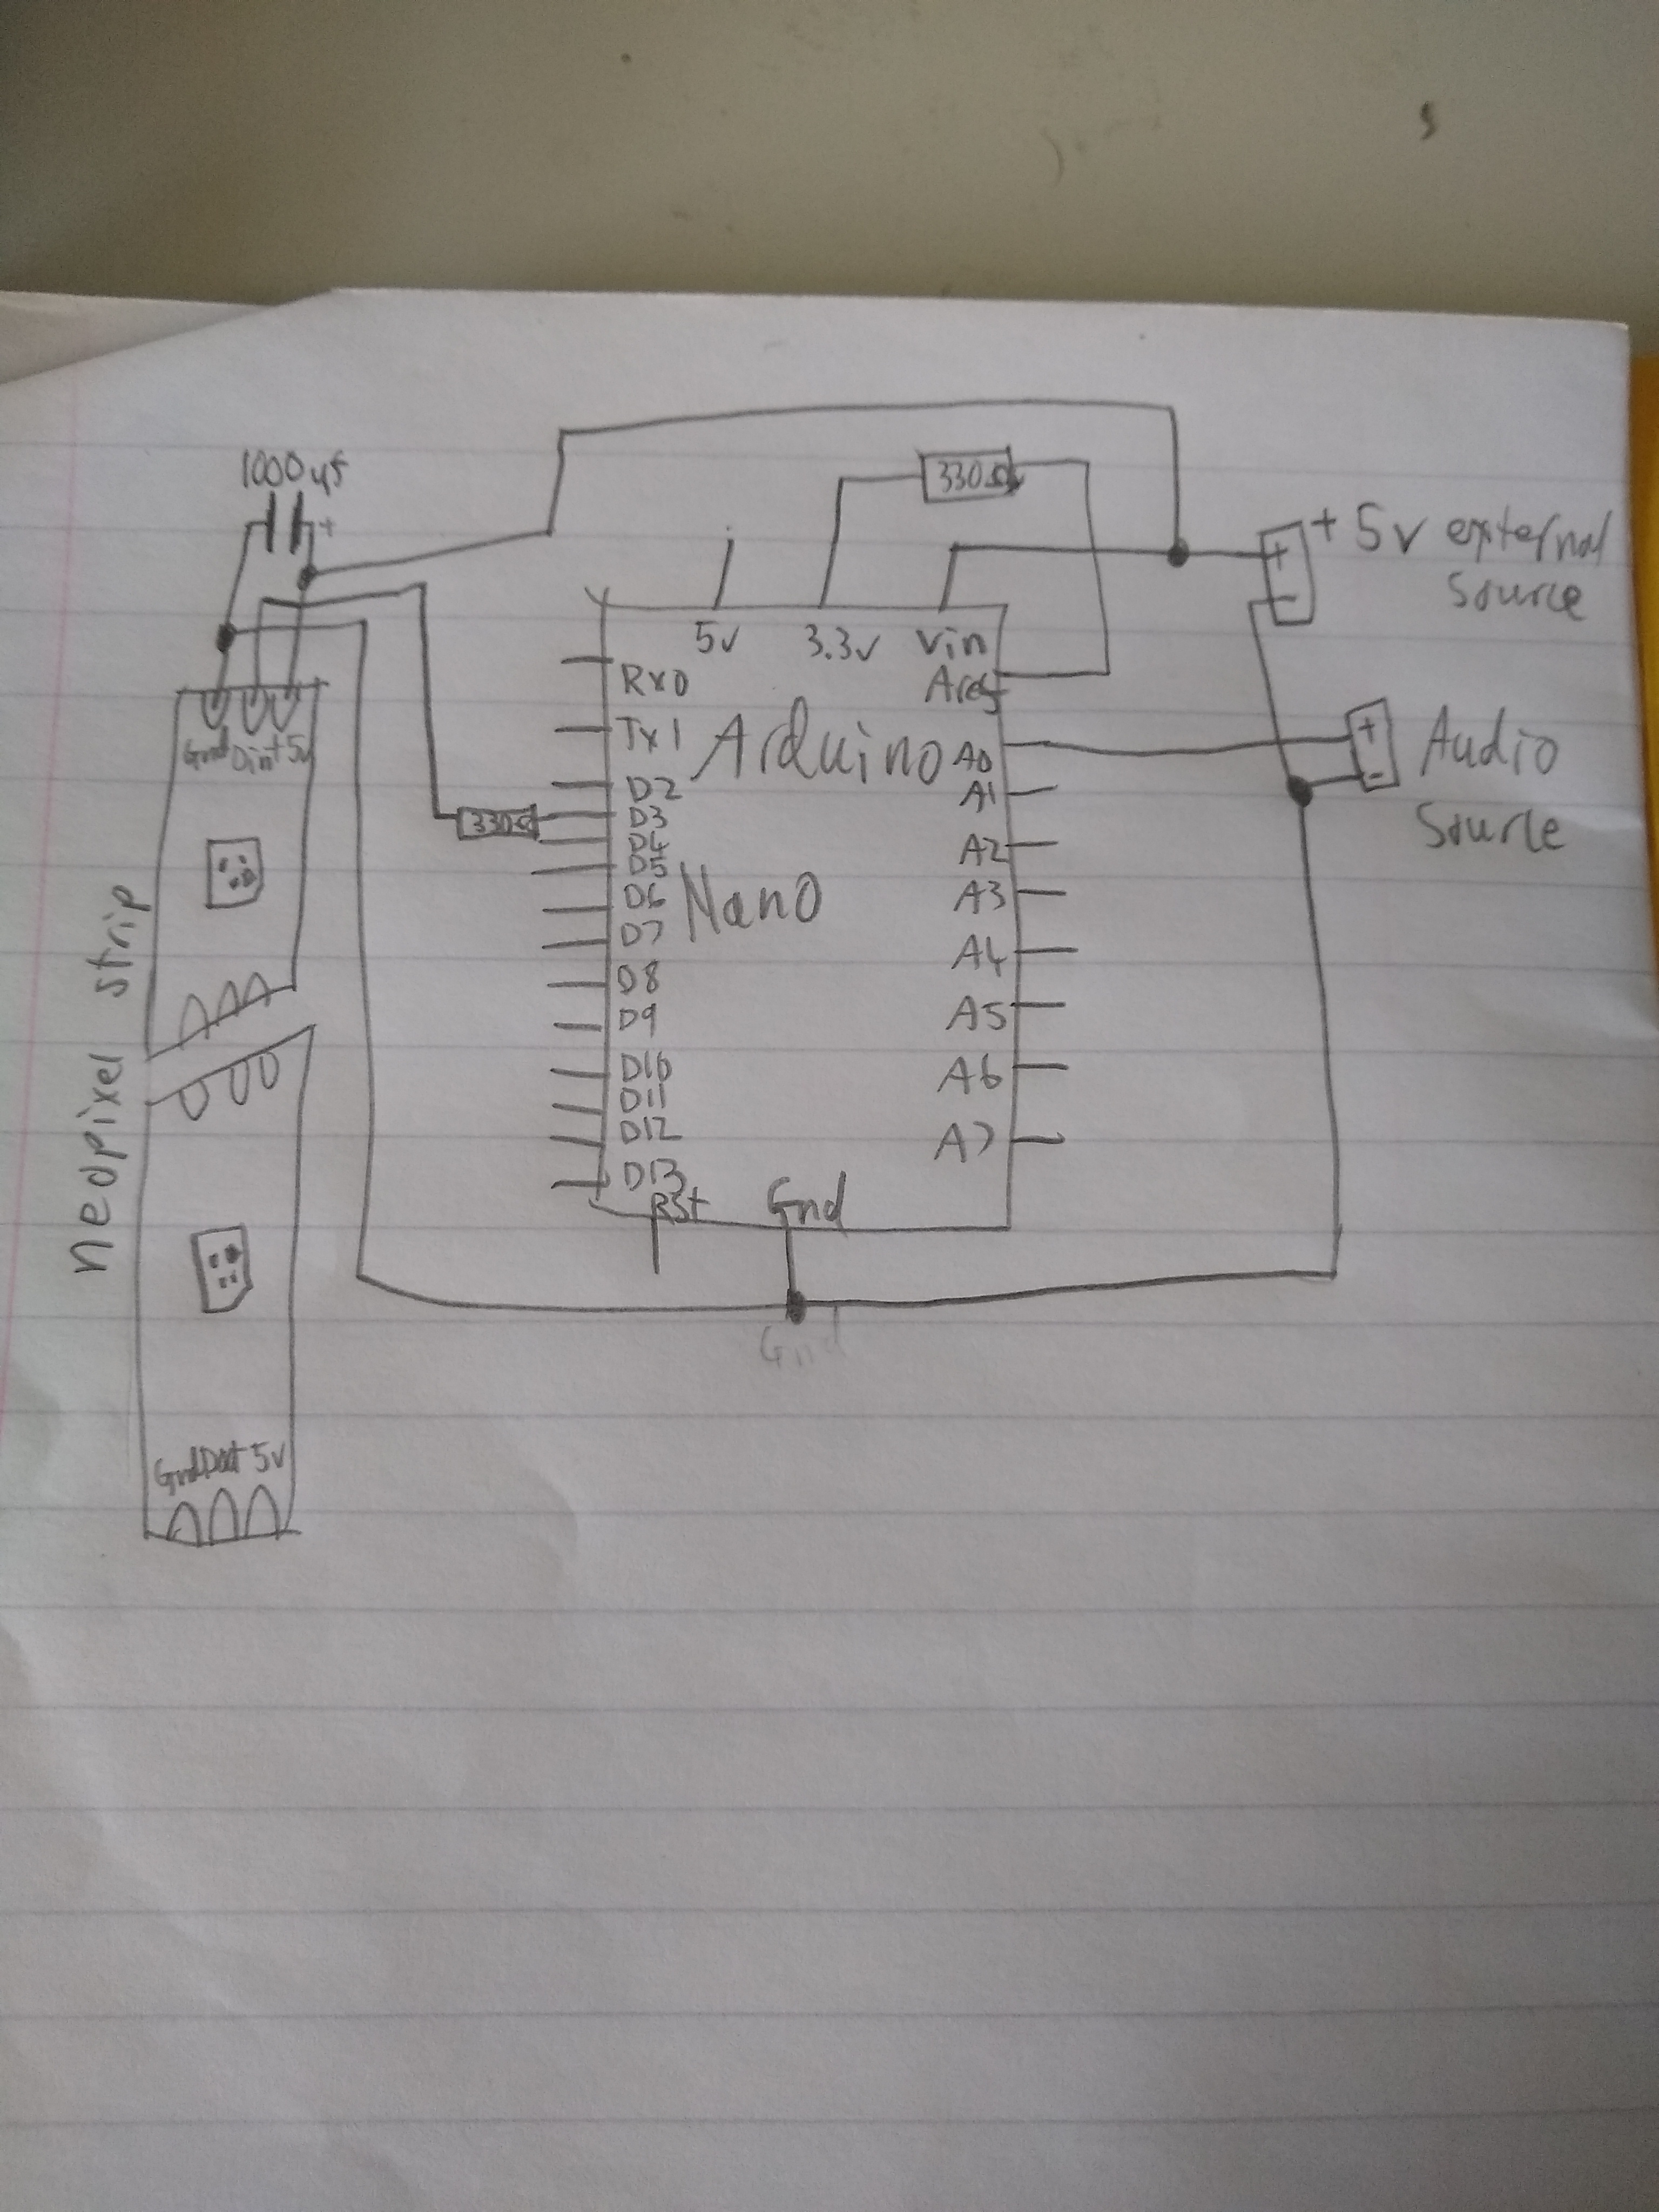 1000uf
+
330Ω
+ 5v external
source
+
-
5v 3.3v Vin
Rx0
Aref
Tx1
Arduino
A0
+
-
Audio
Source
Gnd Din +5v
D2
A1
D3
330Ω
D4
A2
D5
D6
Nano
A3
D7
A4
D8
D9
A5
D10
A6
D11
D12
A7
D13
Rst
Gnd
Gnd
neopixel strip
Gnd Dout 5v